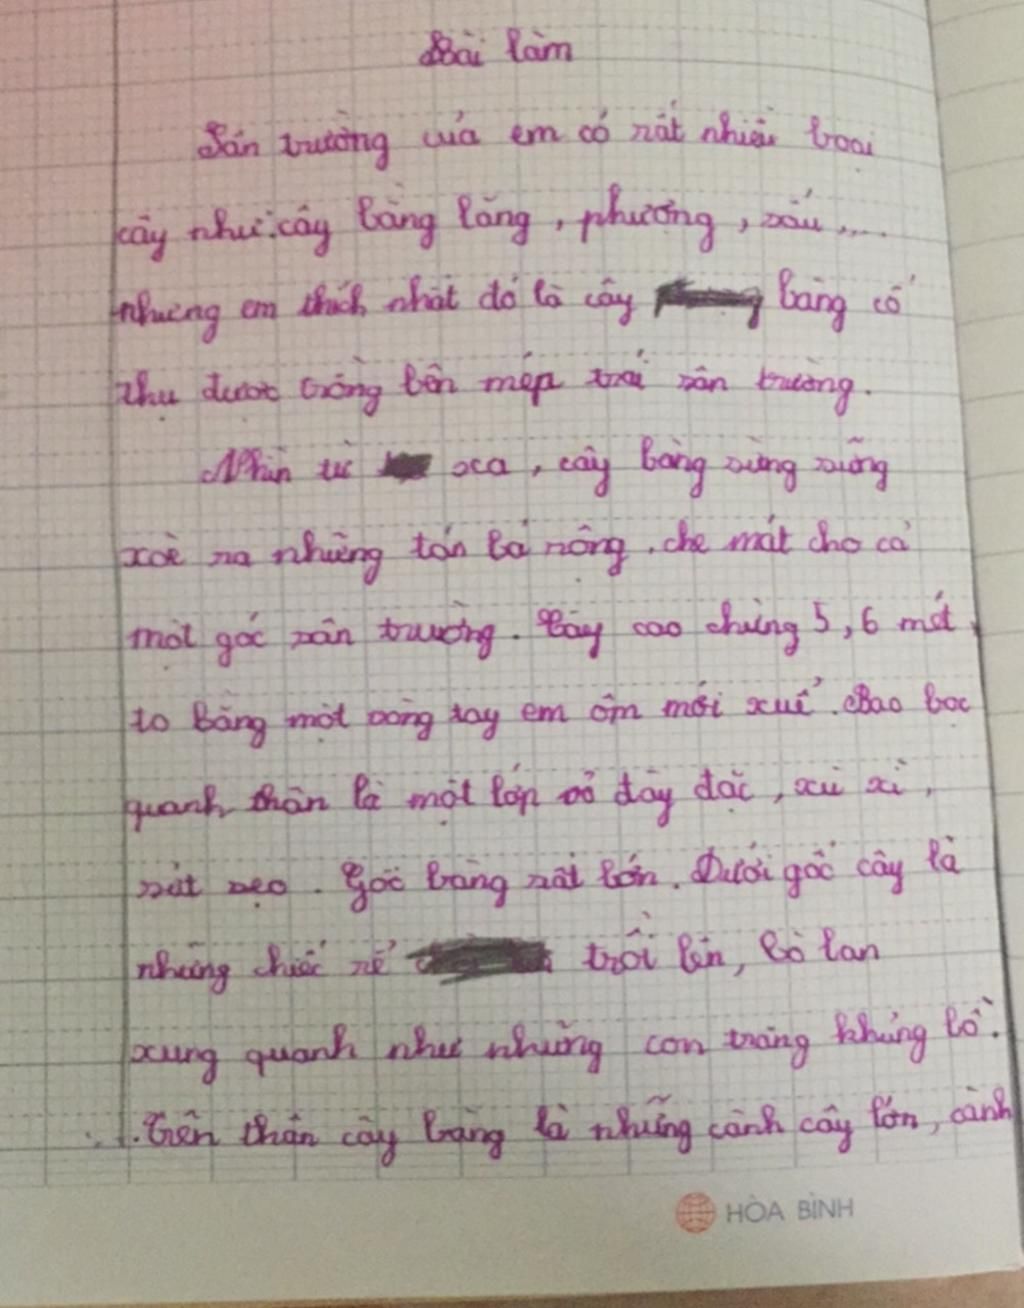 Bài làm
Sân trường của em có rất nhiều loại
cây như: cây bằng lăng, phượng, sấu,....
nhưng em thích nhất đó là cây bàng cổ
thụ được trồng bên mép trái sân trường.
Nhìn từ xa, cây bàng sừng sững
xoè ra những tán lá rộng, che mát cho cả
một góc sân trường. Cây cao chừng 5, 6 mét,
to bằng một vòng tay em ôm mới xuể. Bao bọc
quanh thân là một lớp vỏ dày đặc, xù xì,
nứt nẻo. Gốc bàng rất lớn. Dưới gốc cây là
những chiếc rễ trồi lên, bò lan
xung quanh như những con trăng khủng lồ.
Trên thân cây bàng là những cành cây lớn, cành
HÒA BÌNH